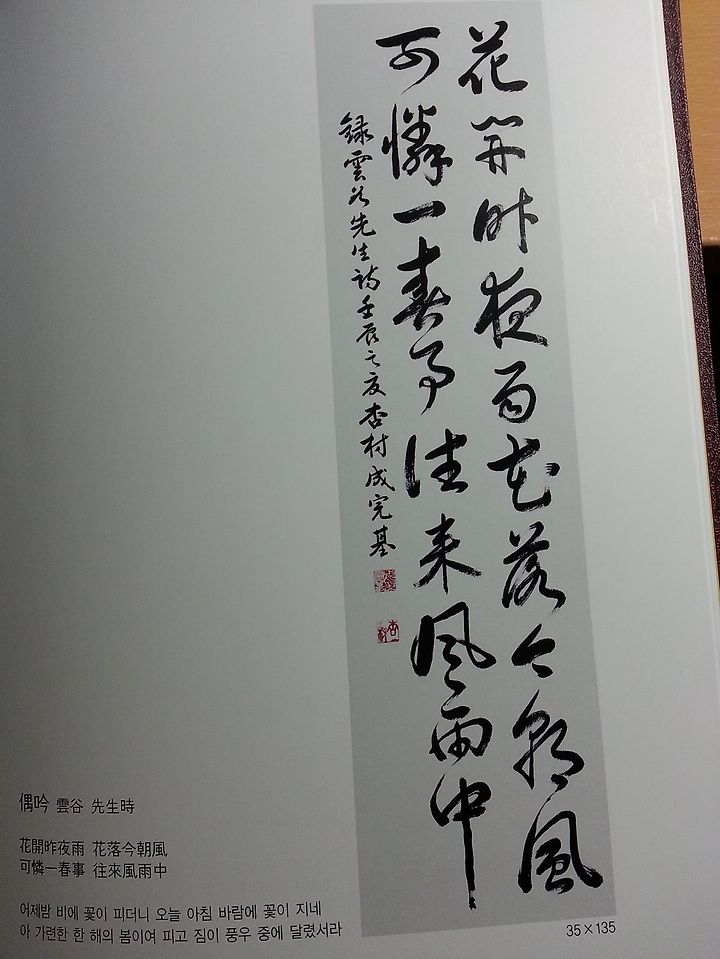 花開昨夜雨花落今朝風
可憐一春事往來風雨中
録雲谷先生詩壬辰之夏杏村成完基
偶吟 雲谷 先生時
花開昨夜雨 花落今朝風
可憐一春事 往來風雨中
어제밤 비에 꽃이 피더니 오늘 아침 바람에 꽃이 지네
아 가련한 한 해의 봄이여 피고 짐이 풍우 중에 달렸서라
35×135